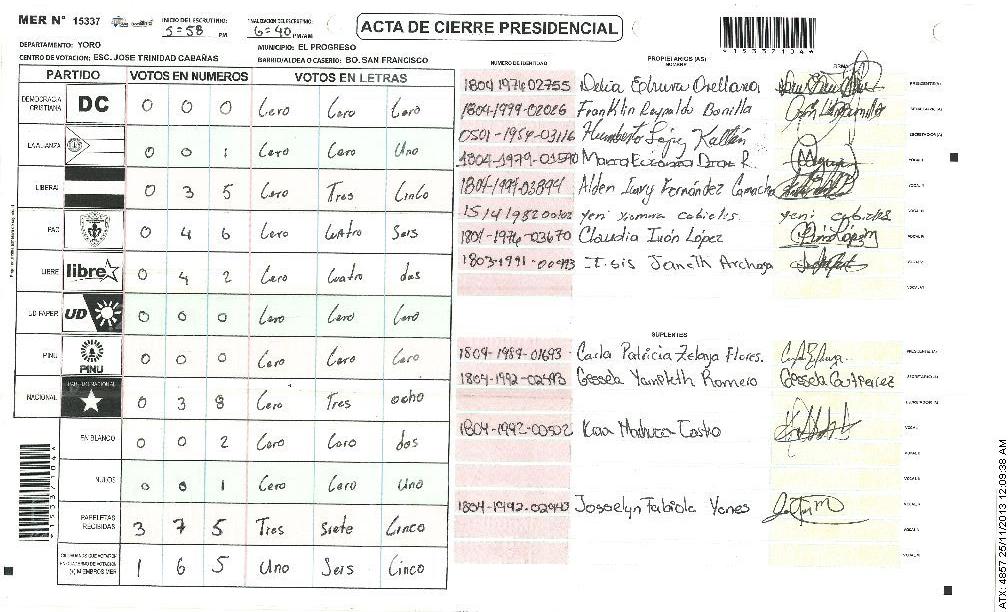 MER N° 15337
INICIO DEL ESCRUTINIO: 5=58 PM
FINALIZACION DEL ESCRUTINIO: 6=40 PM/AM
ACTA DE CIERRE PRESIDENCIAL
*15337104*
DEPARTAMENTO: YORO
MUNICIPIO: EL PROGRESO
CENTRO DE VOTACION: ESC. JOSE TRINIDAD CABAÑAS
BARRIO/ALDEA O CASERIO: BO. SAN FRANCISCO
PARTIDO VOTOS EN NUMEROS VOTOS EN LETRAS
DEMOCRACIA CRISTIANA DC 0 0 0 Cero Cero Cero
LA ALIANZA 0 0 1 Cero Cero Uno
LIBERAL 0 3 5 Cero Tres Cinco
PAC 0 4 6 Cero Cuatro Seis
LIBRE libre 0 4 2 Cero Cuatro dos
UD FAPER UD 0 0 0 Cero Cero Cero
PINU PINU 0 0 0 Cero Cero Cero
NACIONAL PARTIDO NACIONAL 0 3 8 Cero Tres ocho
EN BLANCO 0 0 2 Cero Cero dos
NULOS 0 0 1 Cero Cero Uno
PAPELETAS RECIBIDAS 3 7 5 Tres siete Cinco
CIUDADANOS QUE VOTARON EN CUADERNO DE VOTACION (+) MIEMBROS MER 1 6 5 Uno Seis Cinco
*15337104*
NUMERO DE IDENTIDAD PROPIETARIOS (AS) NOMBRE FIRMA
1804 1976 02755 Delia Edelmira Orellana PRESIDENTE (A)
1804-1999-02026 Franklin Reynaldo Bonilla SECRETARIO (A)
0501-1954-03116 Humberto López Kattán ESCRUTADOR (A)
1804-1979-01590 R. VOCAL I
1804-1991-03894 Alden Fernández Camacho VOCAL II
yeni cubieles. yeni cubieles VOCAL III
1801-1976-03670 Claudia Iván López VOCAL IV
1803-1991-00493 Itsis Janeth Archaga VOCAL V
VOCAL VI
SUPLENTES
1804-1989-01693 Carla Patricia Zelaya Flores. PRESIDENTE (A)
1804-1992-02493 Gessela Yamileth Romero Gessela Gutierrez SECRETARIO (A)
ESCRUTADOR (A)
1804-1992-00502 Castro VOCAL I
VOCAL II
VOCAL III
1804-1992-02943 Josselyn Fabiola Yones VOCAL IV
VOCAL V
VOCAL VI
ATX: 4857 25/11/2013 12:09:38 AM